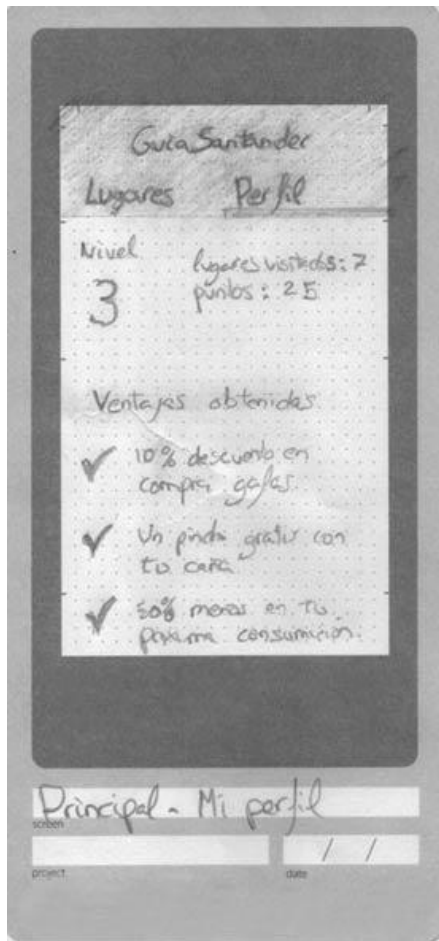 Guia Santander
Lugares Perfil
Nivel
3
lugares visitados: 7
puntos: 25
Ventajas obtenidas
10% descuento en
compra gafas.
Un pincho gratis con
tu caña
50% menos en tu
próxima consumición.
Principal - Mi perfil
screen
/ /
project
date